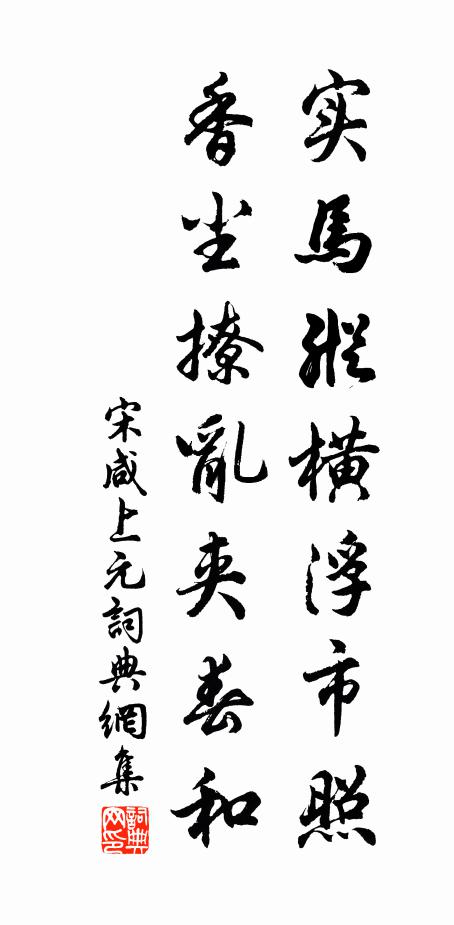 实馬縱橫浮市照
香尘撩亂夹春和
宋咸上元詞典網集
詞典网印